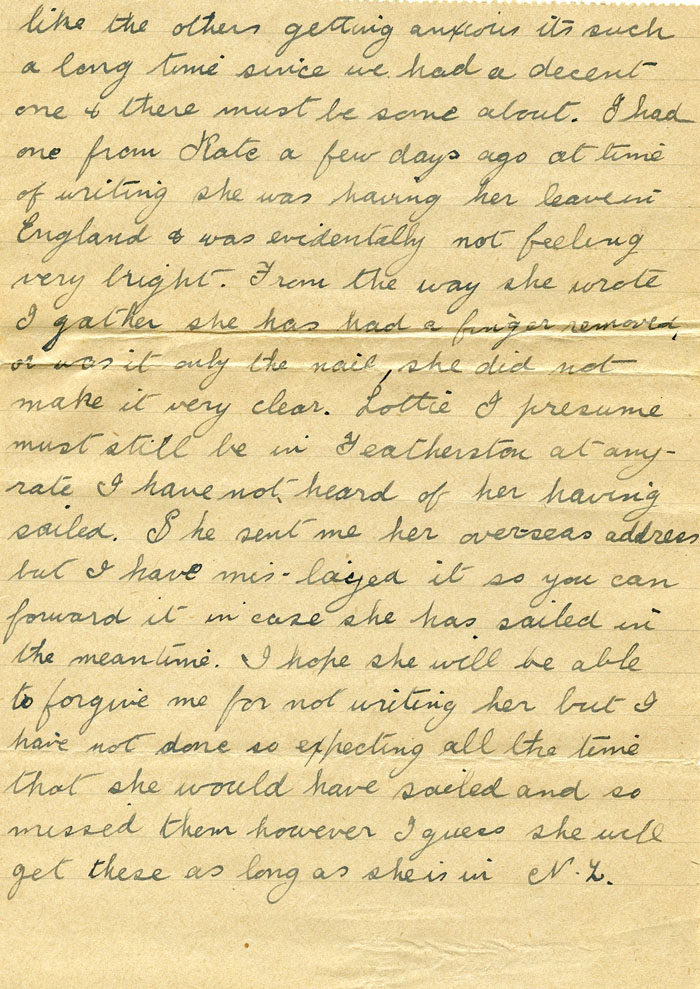 like the others getting anxious its such
a long time since we had a decent
one & there must be some about. I had
one from Kate a few days ago at time
of writing she was having her leave in
England & was evidentally not feeling
very bright. From the way she wrote
I gather she has had a finger removed,
or was it only the nail, she did not
make it very clear. Lottie I presume
must still be in Featherston at any-
rate I have not heard of her having
sailed. She sent me her over-seas address
but I have mis-layed it so you can
forward it in case she has sailed in
the meantime. I hope she will be able
to forgive me for not writing her but I
have not done so expecting all the time
that she would have sailed and so
missed them however I guess she will
get these as long as she is in N.Z.